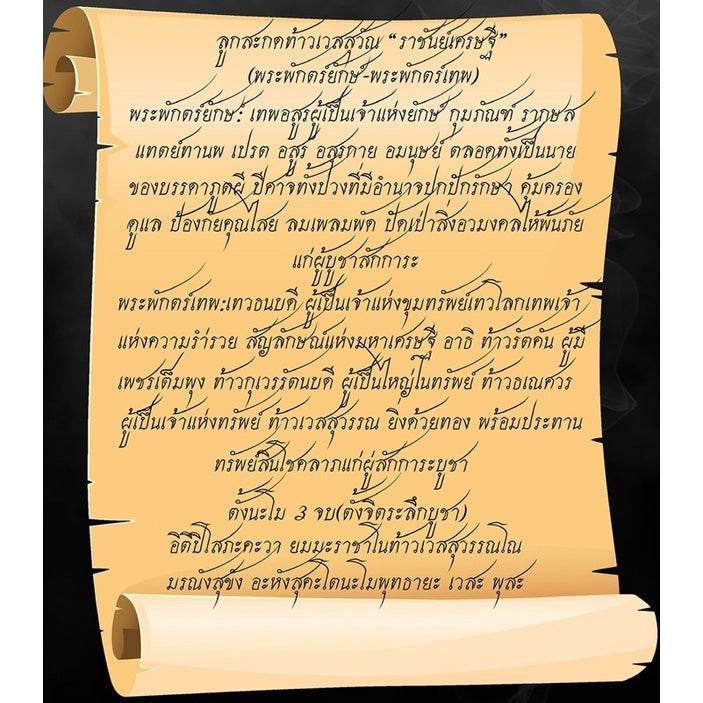 ลูกสะกดท้าวเวสสุวัณ “ราชันย์เศรษฐี”
(พระพักตร์ยักษ์-พระพักตร์เทพ)
พระพักตร์ยักษ์: เทพอสูรผู้เป็นเจ้าแห่งยักษ์ กุมภัณฑ์ รากษส
แทตย์ทานพ เปรต อสูร อสุรกาย อมนุษย์ ตลอดทั้งเป็นนาย
ของบรรดาภูตผี ปีศาจทั้งปวงที่มีอำนาจปกปักรักษา คุ้มครอง
ดูแล ป้องกัยคุณไสย ลมเพลมพัด ปัดเป่าสิ่งอวมงคลให้พ้นภัย
แก่ผู้บูชาสักการะ
พระพักตร์เทพ:เทวธนบดี ผู้เป็นเจ้าแห่งขุมทรัพย์เทวโลกเทพเจ้า
แห่งความร่ำรวย สัญลักษณ์แห่งมหาเศรษฐี อาธิ ท้าวรัตคัน ผู้มี
เพชรเต็มพุง ท้าวกุเวรรัตนบดี ผู้เป็นใหญ่ในทรัพย์ ท้าวธเณศวร
ผู้เป็นเจ้าแห่งทรัพย์ ท้าวเวสสุวรรณ ยิ่งด้วยทอง พร้อมประทาน
ทรัพย์สินโชคลาภแก่ผู่สักการะบูชา
ตั้งนะโม 3 จบ(ตั้งจิตระลึกบูชา)
อิติปิโสภะคะวา ยมมะราชาโนท้าวเวสสุวรรณโณ
มรณังสุขัง อะหังสุคะโตนะโมพุทธายะ เวสะ พุสะ